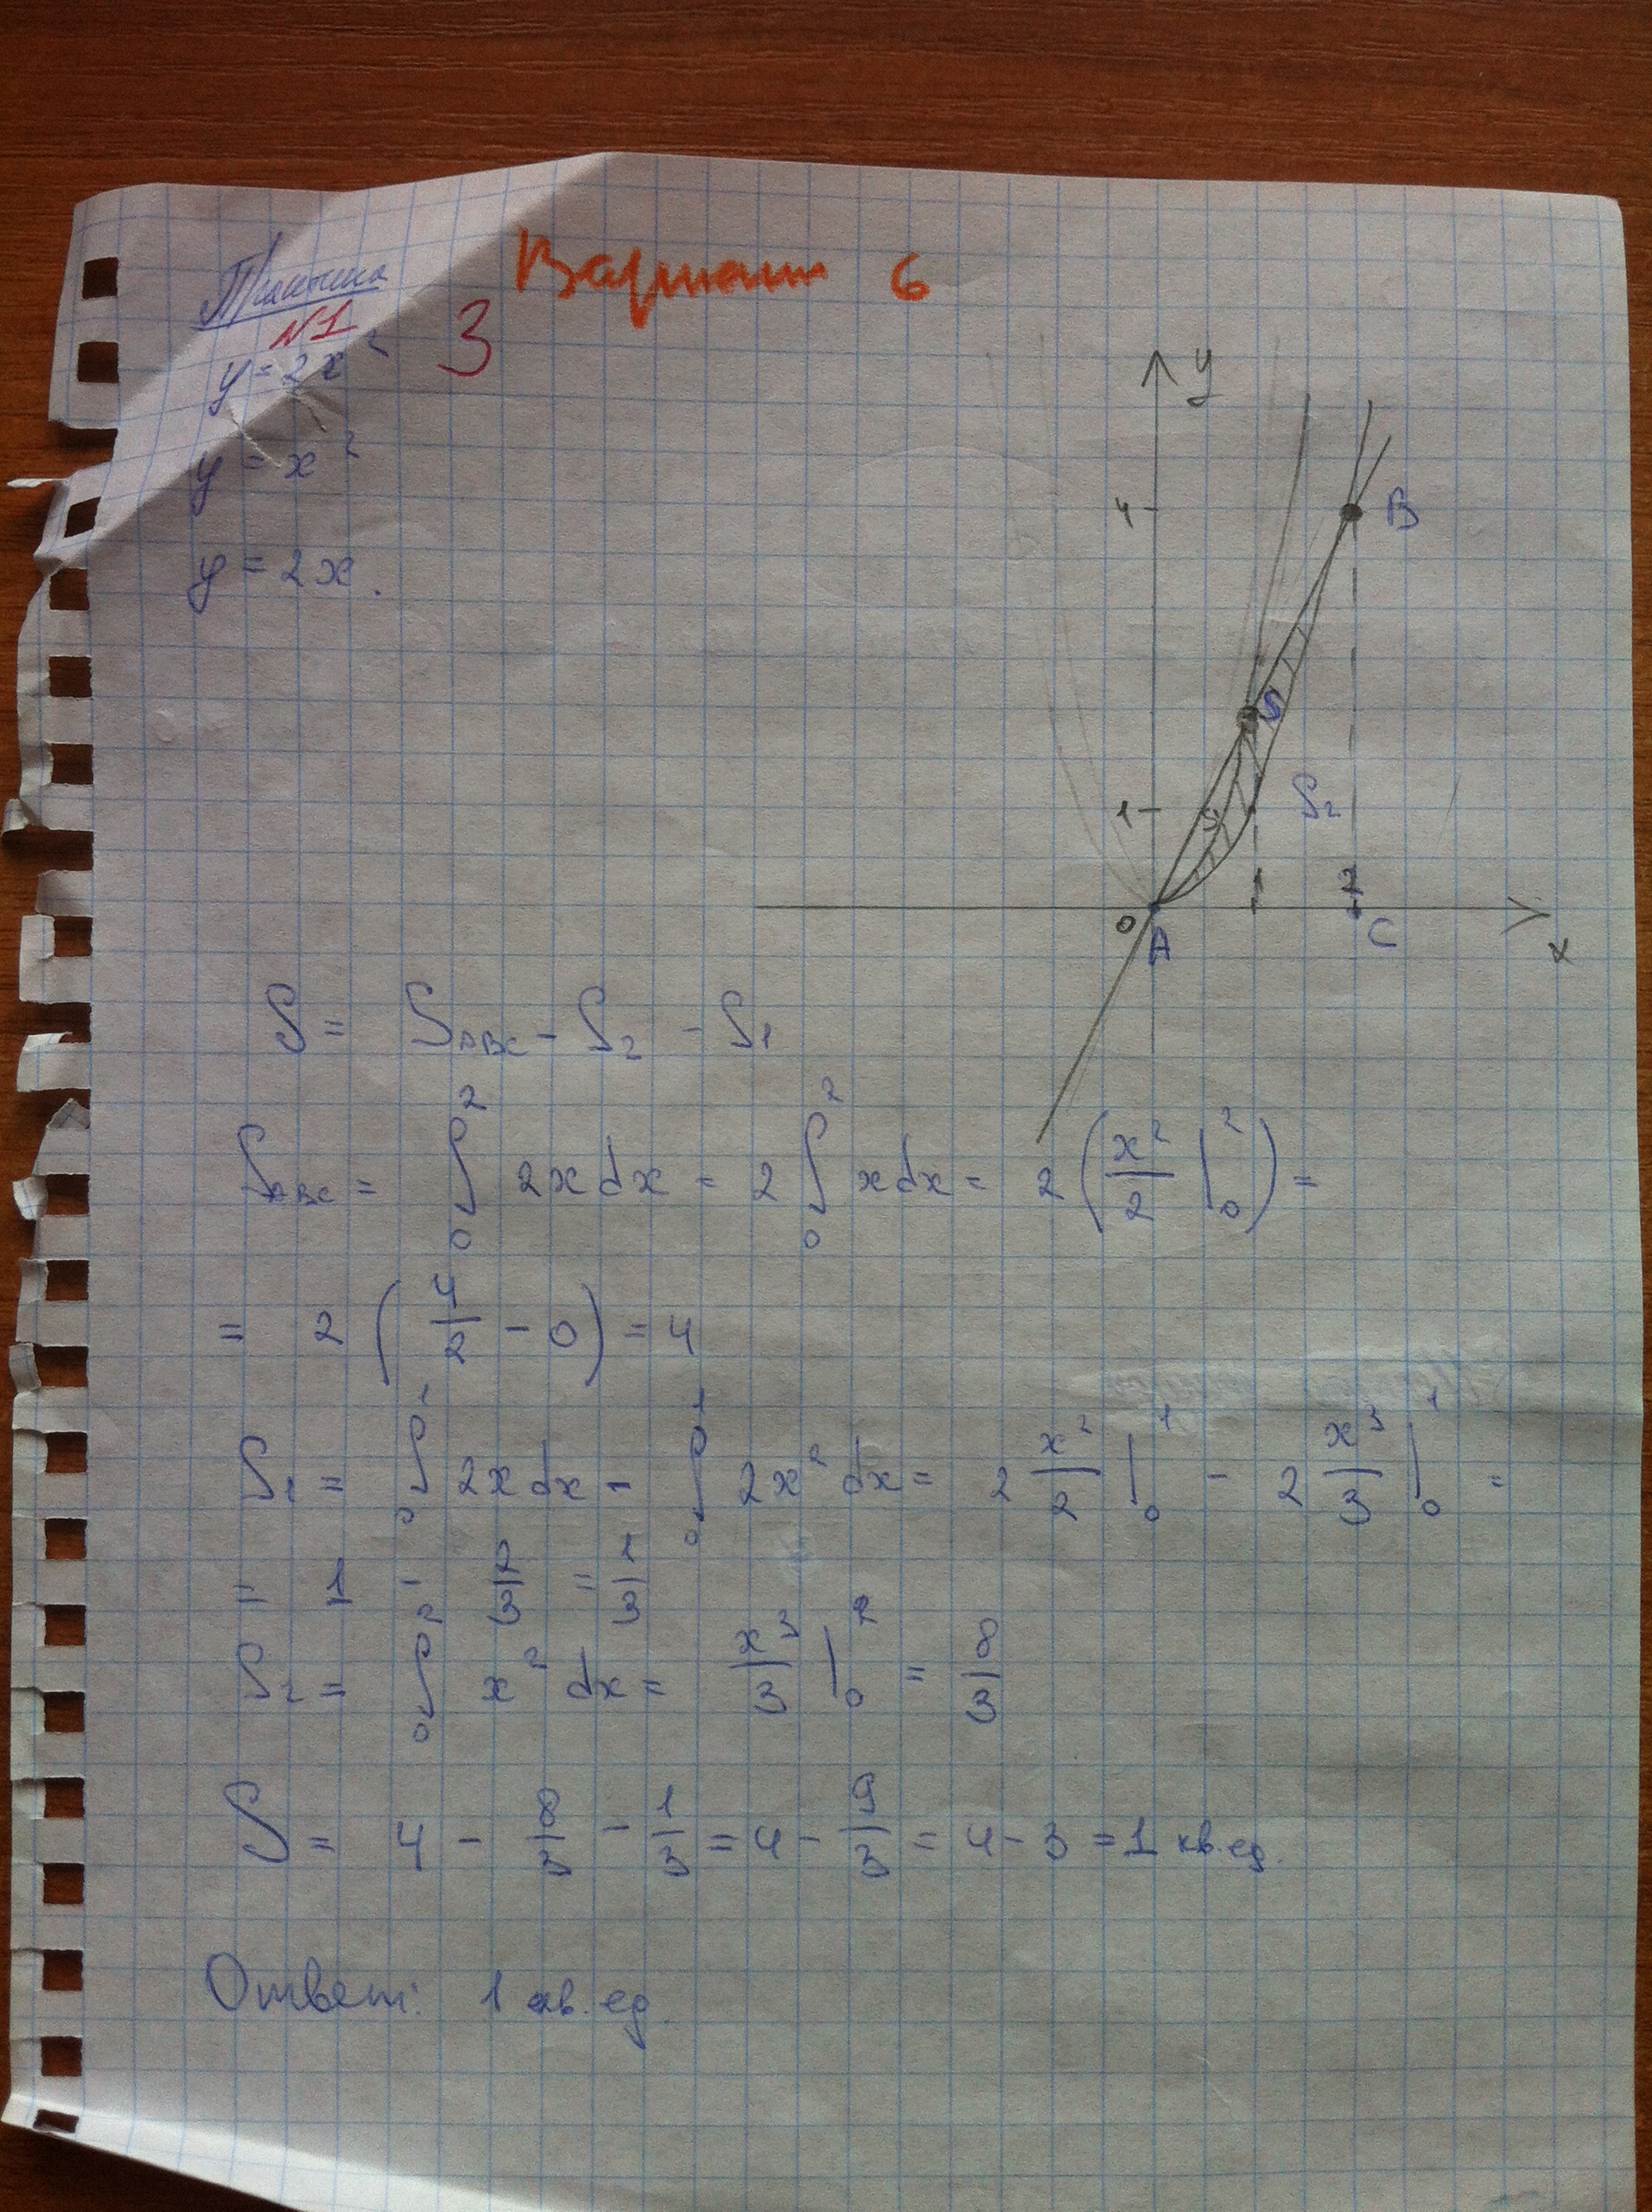 Вариант 6
Практика
№1
3
y = 2x²
y = x²
y = 2x.
y
4
B
S
1
S₁
S₂
1
2
0
A
C
x
S = S_ABC - S₂ - S₁
S_ABC = ∫₀² 2x dx = 2 ∫₀² x dx = 2 (x²/2 |₀²) =
= 2 (4/2 - 0) = 4
S₁ = ∫₀¹ 2x dx - ∫₀¹ 2x² dx = 2 x²/2 |₀¹ - 2 x³/3 |₀¹ =
= 1 - 2/3 = 1/3
S₂ = ∫₀² x² dx = x³/3 |₀² = 8/3
S = 4 - 8/3 - 1/3 = 4 - 9/3 = 4 - 3 = 1 кв. ед.
Ответ: 1 кв. ед.